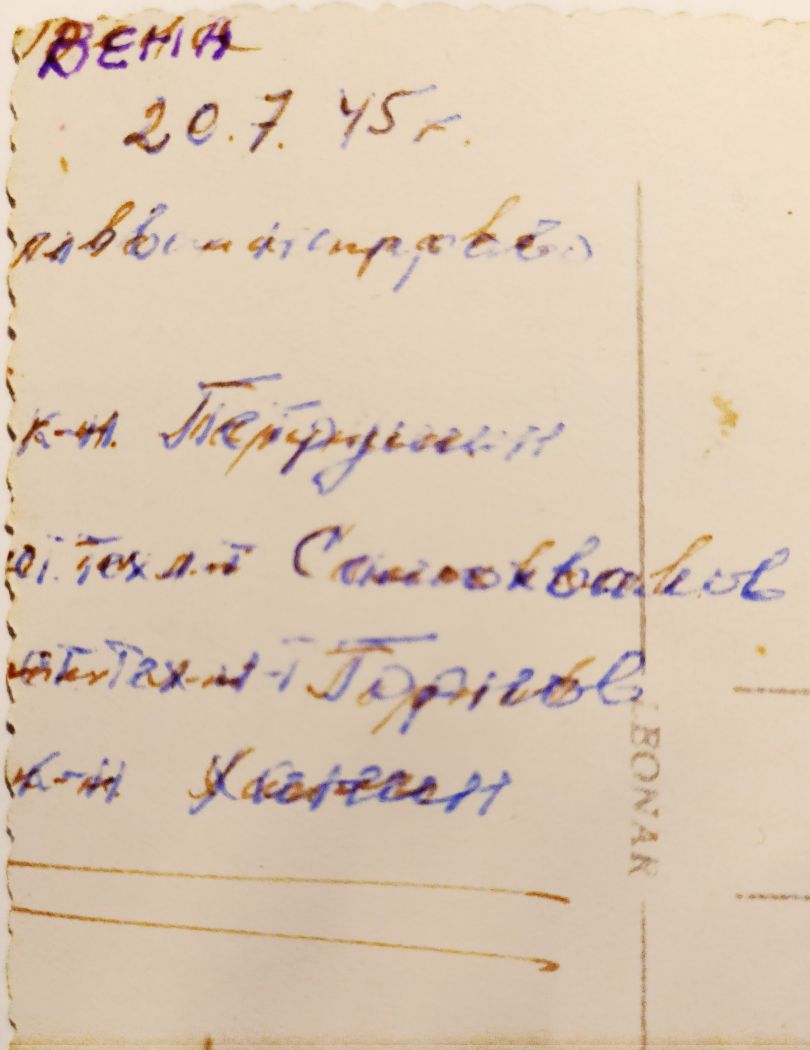 Вена
20.7. 45 г.
к-н. Петрушин
ст. тех л-т Самохвалов
ст. Тех-л-т Горлов
к-н Ханин
LEONAR